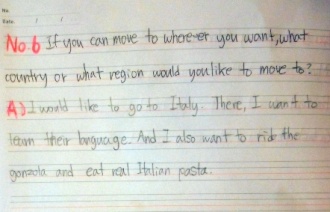 No.
Date. / /
No.6 If you can move to wherever you want, what
country or what region would you like to move to?
A) I would like to go to Italy. There, I want to
learn their language. And I also want to rid the
gonzola and eat real Italian pasta.